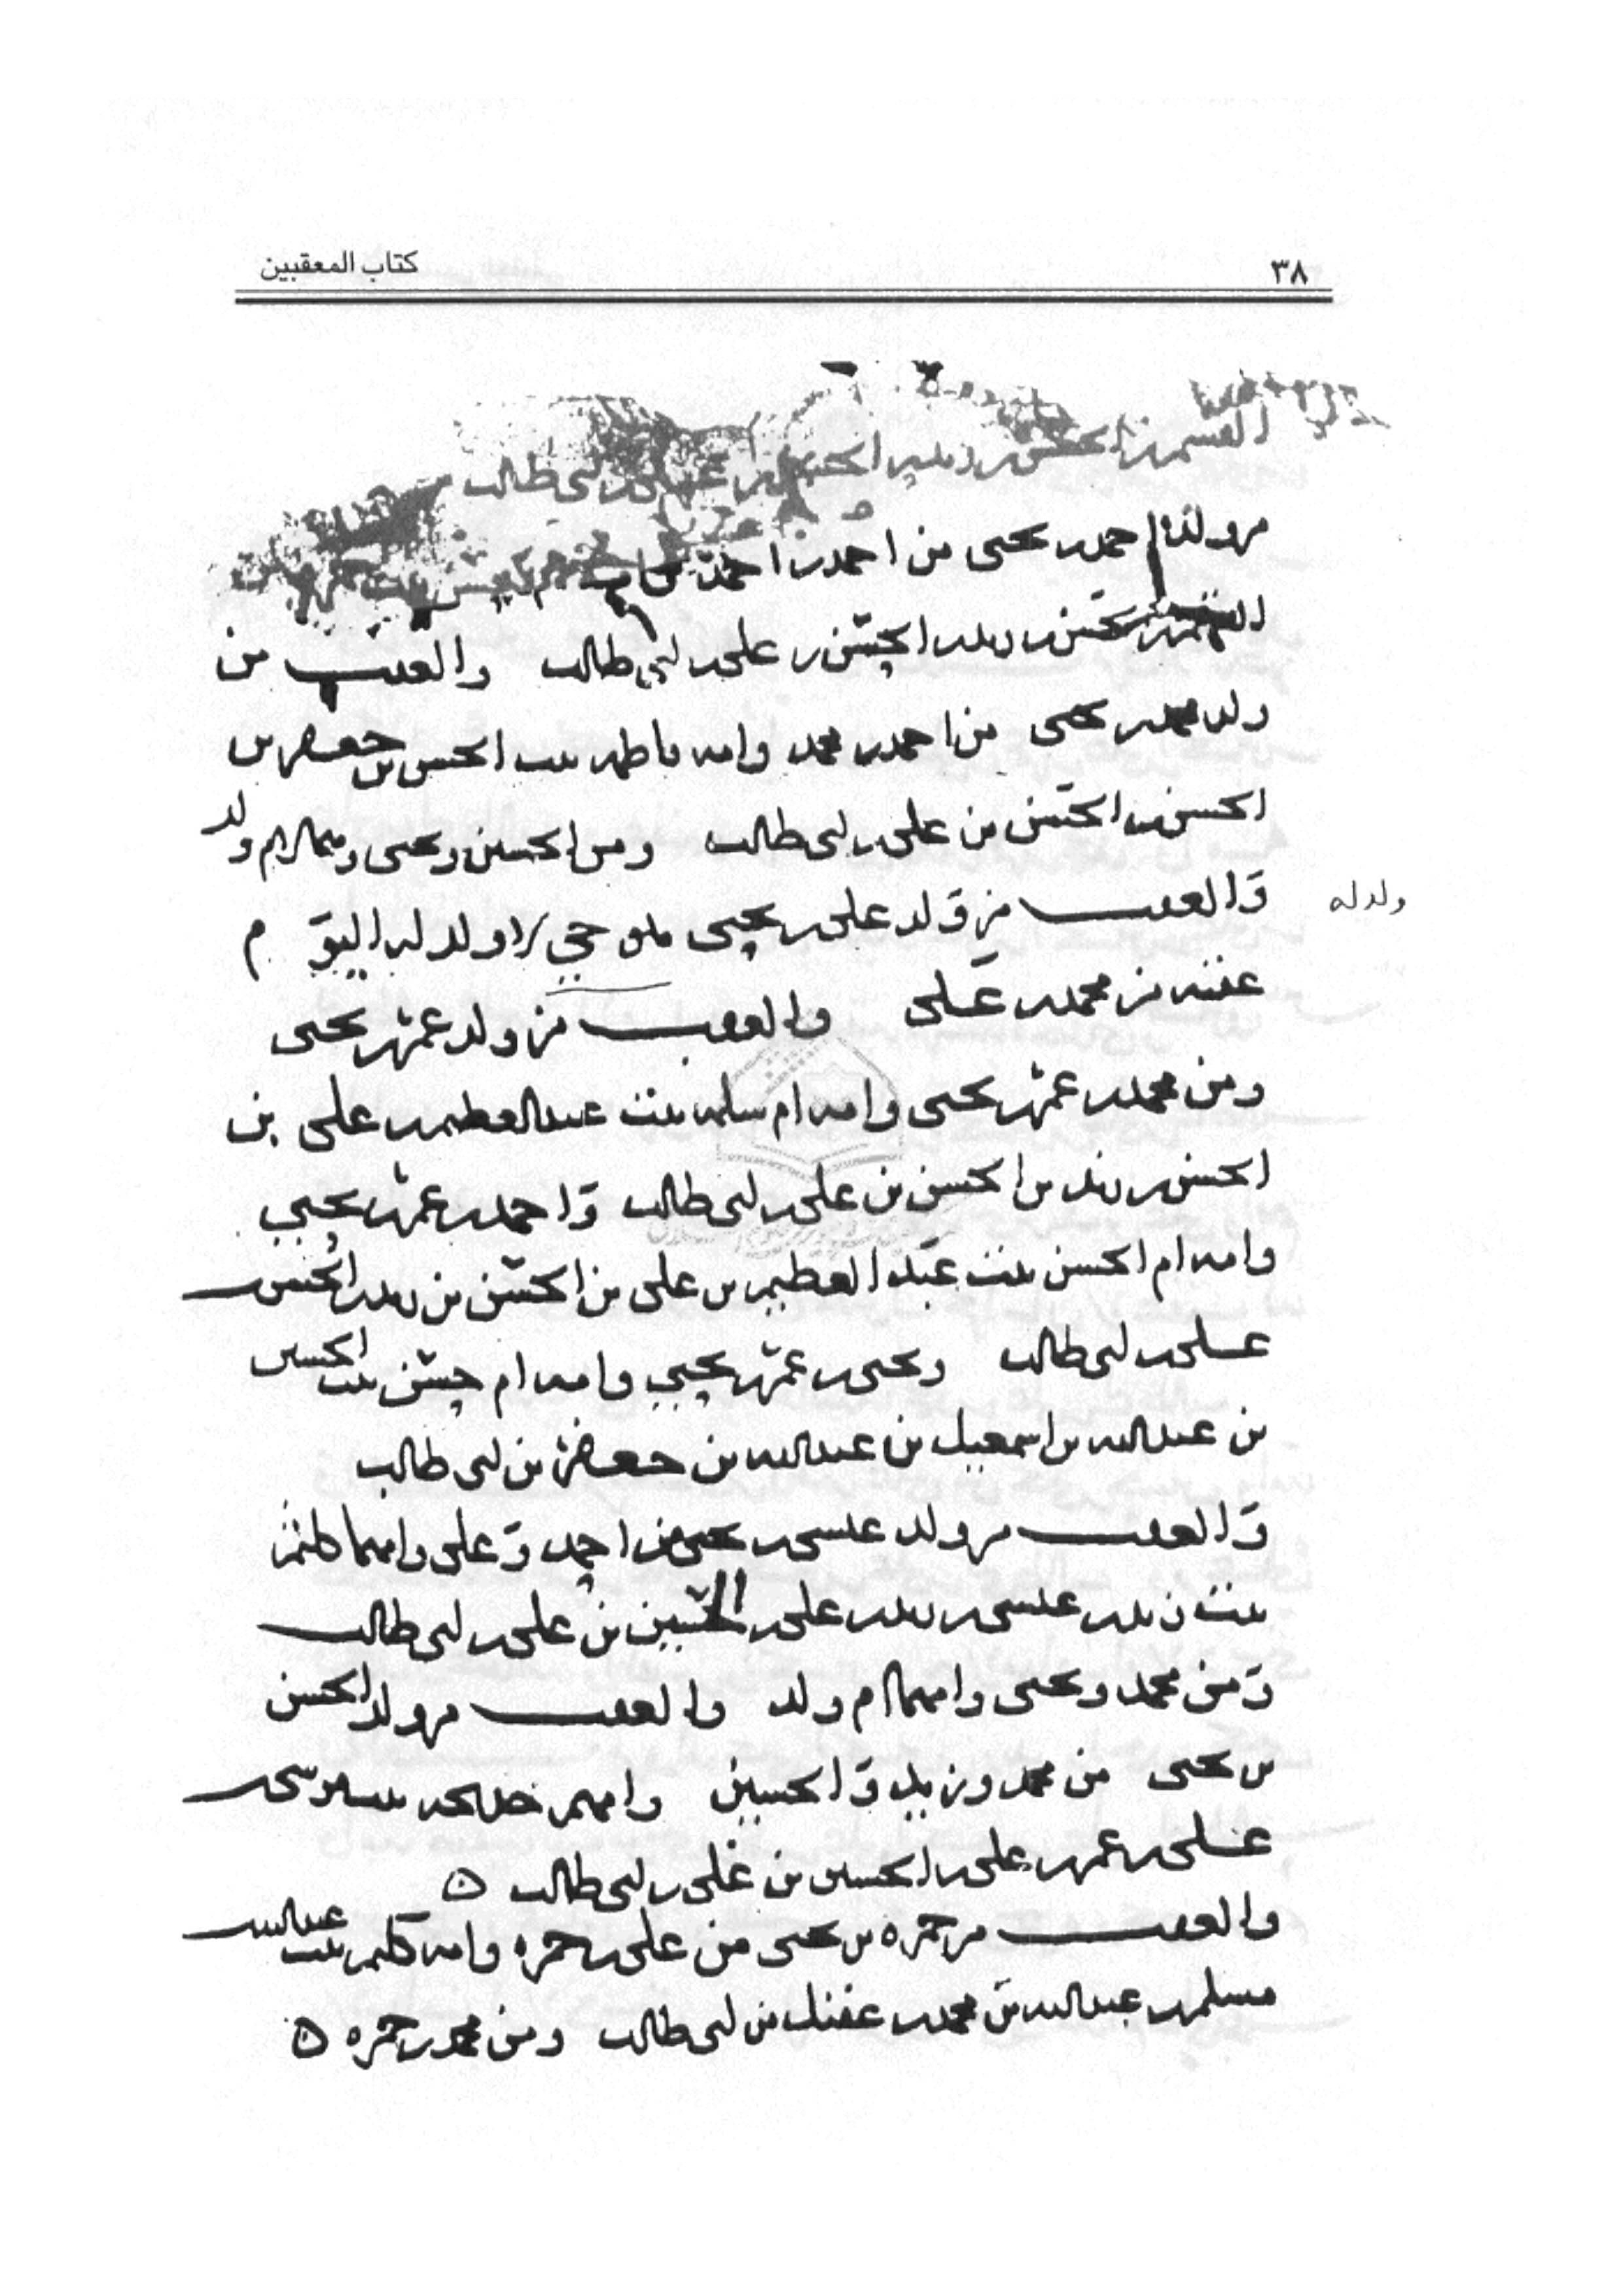 ٣٨
كتاب المعقبين
القسم بن الحسن بن زيد بن الحسن بن علي بن ابي طالب
من ولد احمد بن يحيى من احمد بن احمد
القسم بن الحسن بن زيد بن الحسن بن علي بن ابي طالب والعقب من
ولد محمد بن يحيى من احمد بن محمد وامه فاطمه بنت الحسن بن جعفر بن
الحسن بن الحسن بن علي بن ابي طالب ومن الحسين ويحيى وهما لام ولد
والعقب من ولد علي بن يحيى ولد له
م
عقبه من محمد بن علي والعقب من ولد عمر بن يحيى
ومن محمد بن عمر بن يحيى وامه ام سلمه بنت عبد العظيم بن علي بن
الحسن بن زيد بن الحسن بن علي بن ابي طالب واحمد بن عمر بن يحيى
وامه ام الحسن بنت عبد العظيم بن علي بن الحسن بن زيد بن الحسن بن
علي بن ابي طالب ويحيى بن عمر بن يحيى وامه ام حسن بنت الحسين
بن عبد الله بن اسمعيل بن عبد الله بن جعفر بن ابي طالب
والعقب من ولد عيسى بن يحيى من احمد وعلي وامهما كلثم
بنت زيد بن عيسى بن زيد بن علي بن الحسين بن علي بن ابي طالب
ومن محمد ويحيى وامهما ام ولد والعقب من ولد الحسن
بن يحيى من محمد وزيد والحسين وامهم خديجه بنت موسى بن
علي بن عمر بن علي بن الحسين بن علي بن ابي طالب ه
والعقب من حمزه بن يحيى من علي بن حمزه وامه كليم بنت عبد الله بن
مسلم بن عبد الله بن محمد بن عقيل بن ابي طالب ومن محمد بن حمزه ه